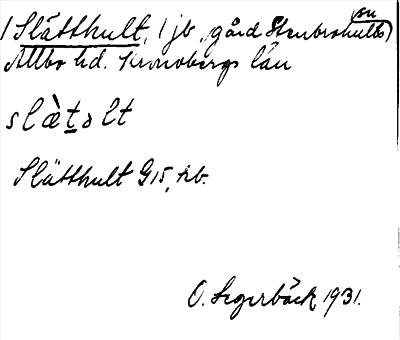 1 Slätthult, 1 jb., gård Stenbrohults sn
Allbo hd. Kronobergs län
slὰt̠ɘlt
Slätthult G15, hb.
O. Segerbäck 1931.